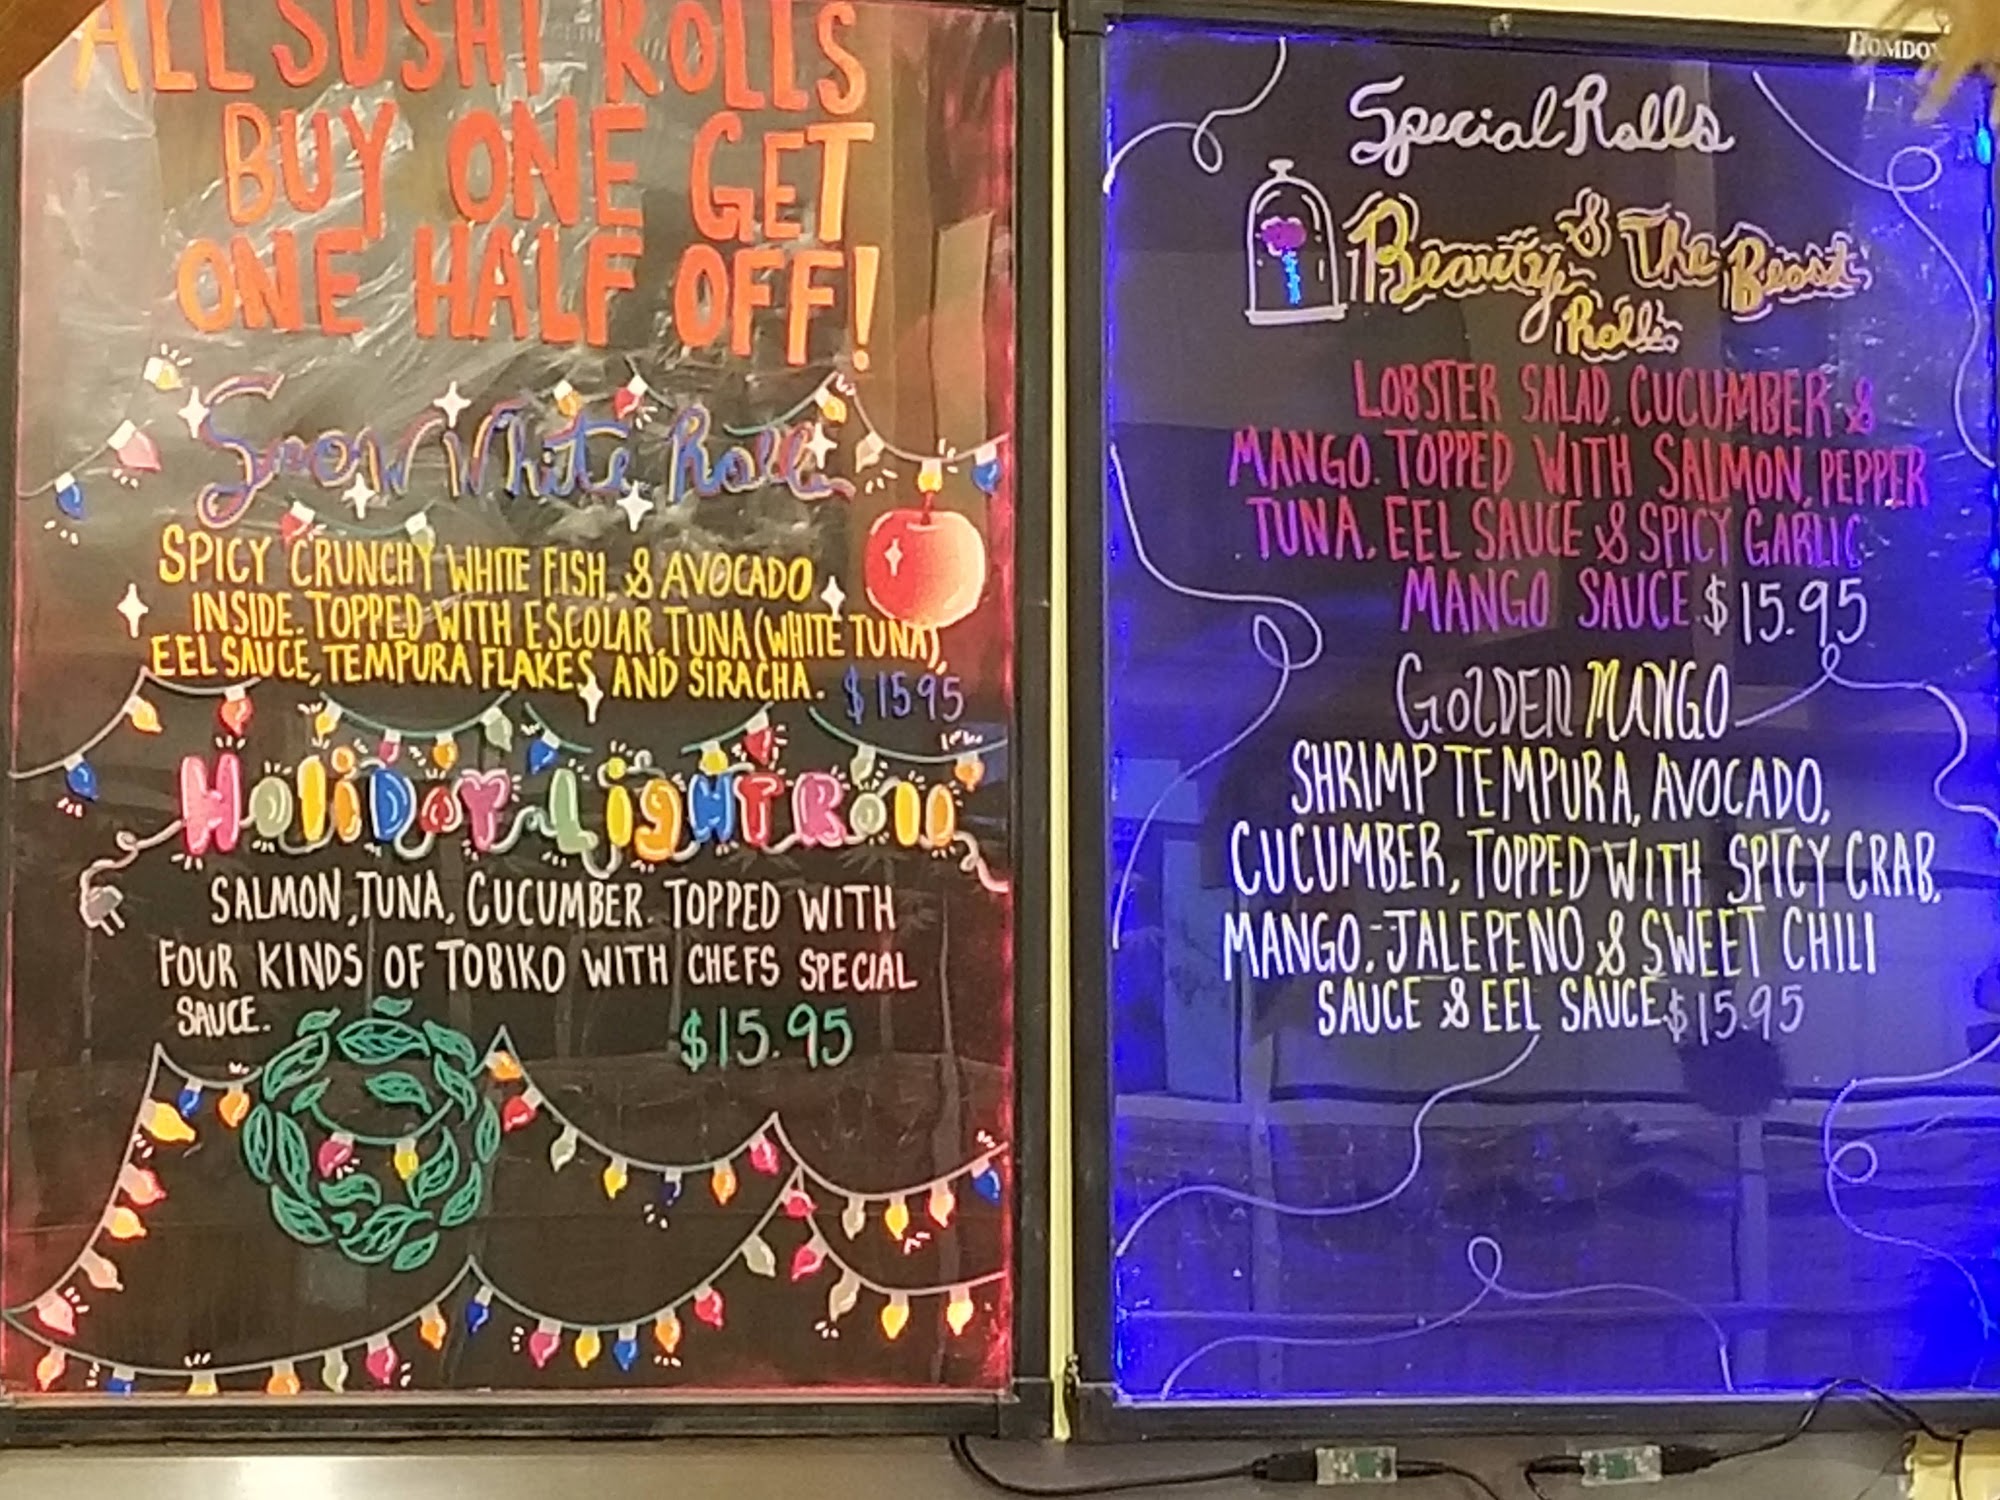 ALL SUSHI ROLLS
BUY ONE GET
ONE HALF OFF!
Snow White Roll
SPICY CRUNCHY WHITE FISH, & AVOCADO
INSIDE. TOPPED WITH ESCOLAR, TUNA (WHITE TUNA),
EEL SAUCE, TEMPURA FLAKES, AND SIRACHA.
$15.95
HOLIDAY LIGHT ROLL
SALMON, TUNA, CUCUMBER. TOPPED WITH
FOUR KINDS OF TOBIKO WITH CHEFS SPECIAL
SAUCE.
$15.95
Special Rolls
Beauty & The Beast
Roll
LOBSTER SALAD, CUCUMBER &
MANGO. TOPPED WITH SALMON, PEPPER
TUNA, EEL SAUCE & SPICY GARLIC
MANGO SAUCE $15.95
GOLDEN MANGO
SHRIMP TEMPURA, AVOCADO,
CUCUMBER, TOPPED WITH SPICY CRAB,
MANGO, JALEPENO & SWEET CHILI
SAUCE & EEL SAUCE $15.95